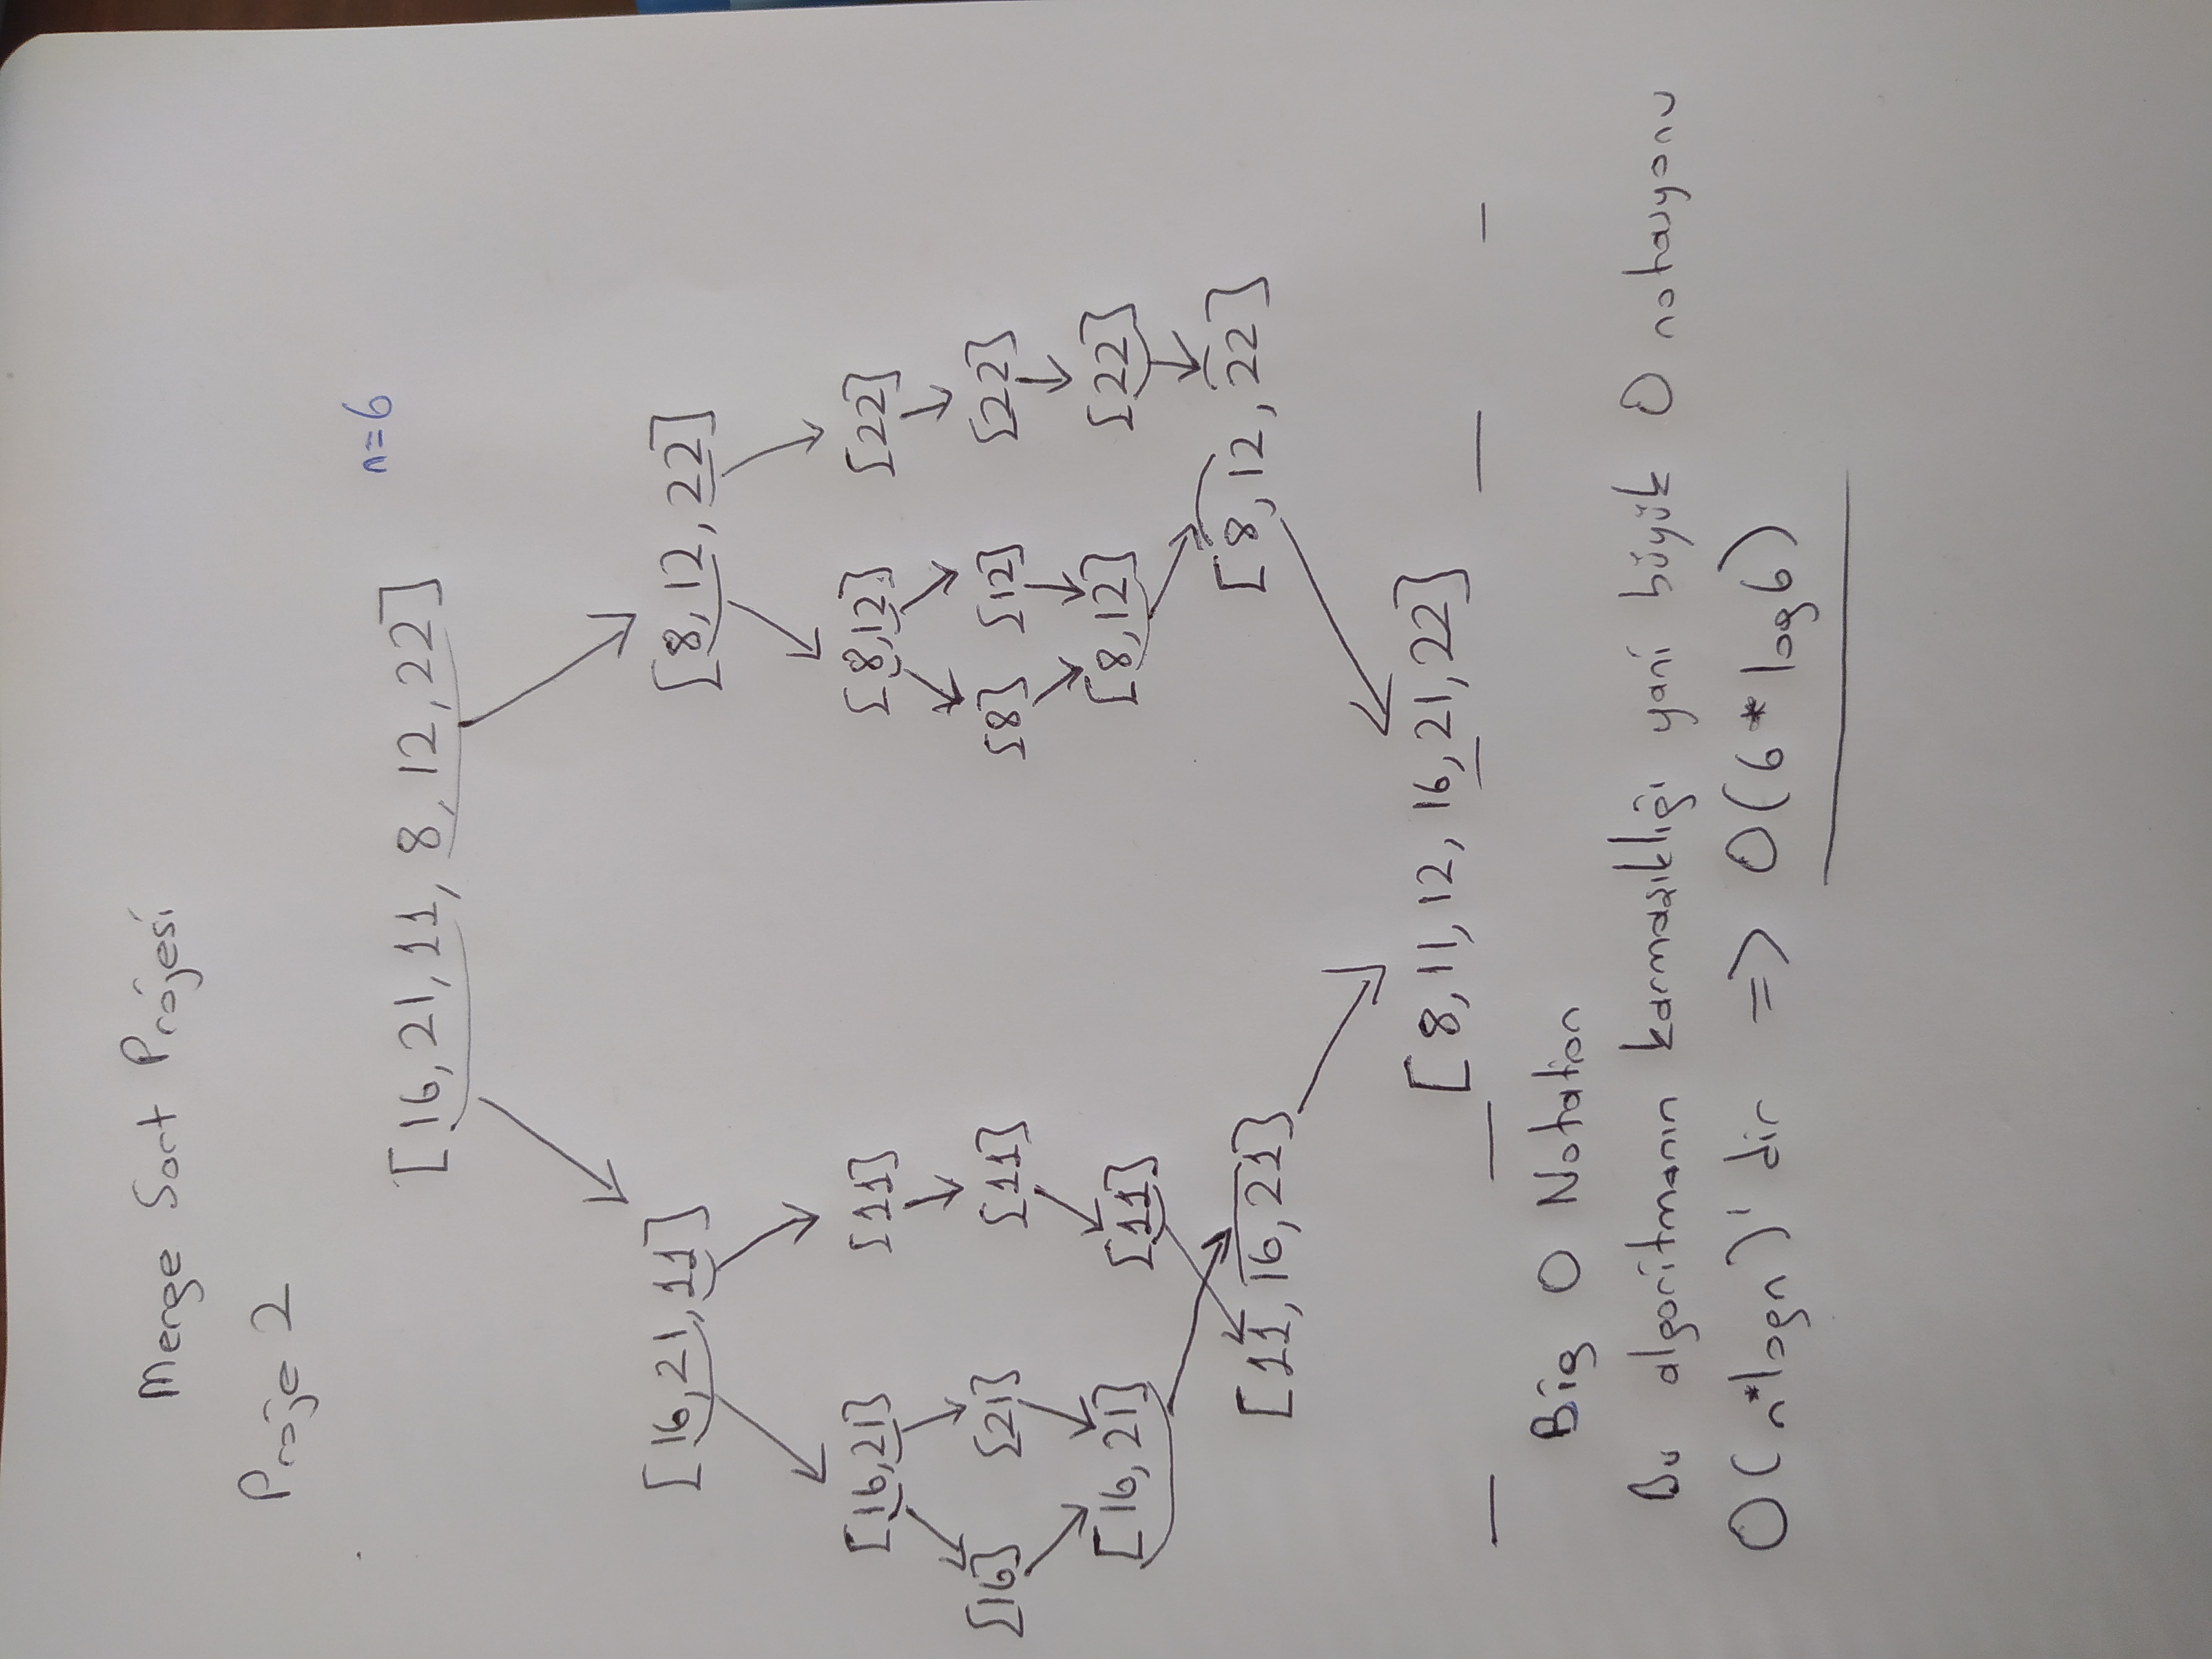 Merge Sort Projesi
Proje 2
n=6
[16, 21, 11, 8, 12, 22]
[16, 21, 11] [8, 12, 22]
[16, 21] [11] [8, 12] [22]
[16] [21] [11] [8] [12] [22]
[16, 21] [11] [8, 12] [22]
[11, 16, 21] [8, 12, 22]
[8, 11, 12, 16, 21, 22]
Big O Notation
Bu algoritmanın karmaşıklığı yani büyük O notasyonu
O(n*logn)' dir => O(6*log6)